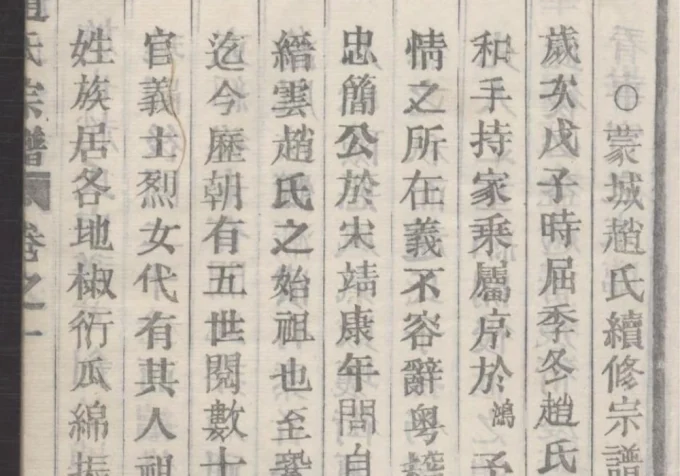 ○蒙城趙氏續修宗譜
歲次戊子時屆季冬趙氏
和手持家乘屬序於鴻予
情之所在義不容辭粵
忠簡公於宋靖康年間自
縉雲趙氏之始祖也至
迄今歷朝有五世閱數十
官義士烈女代有其人祖
姓族居各地椒衍瓜綿振
趙氏宗譜 卷之一